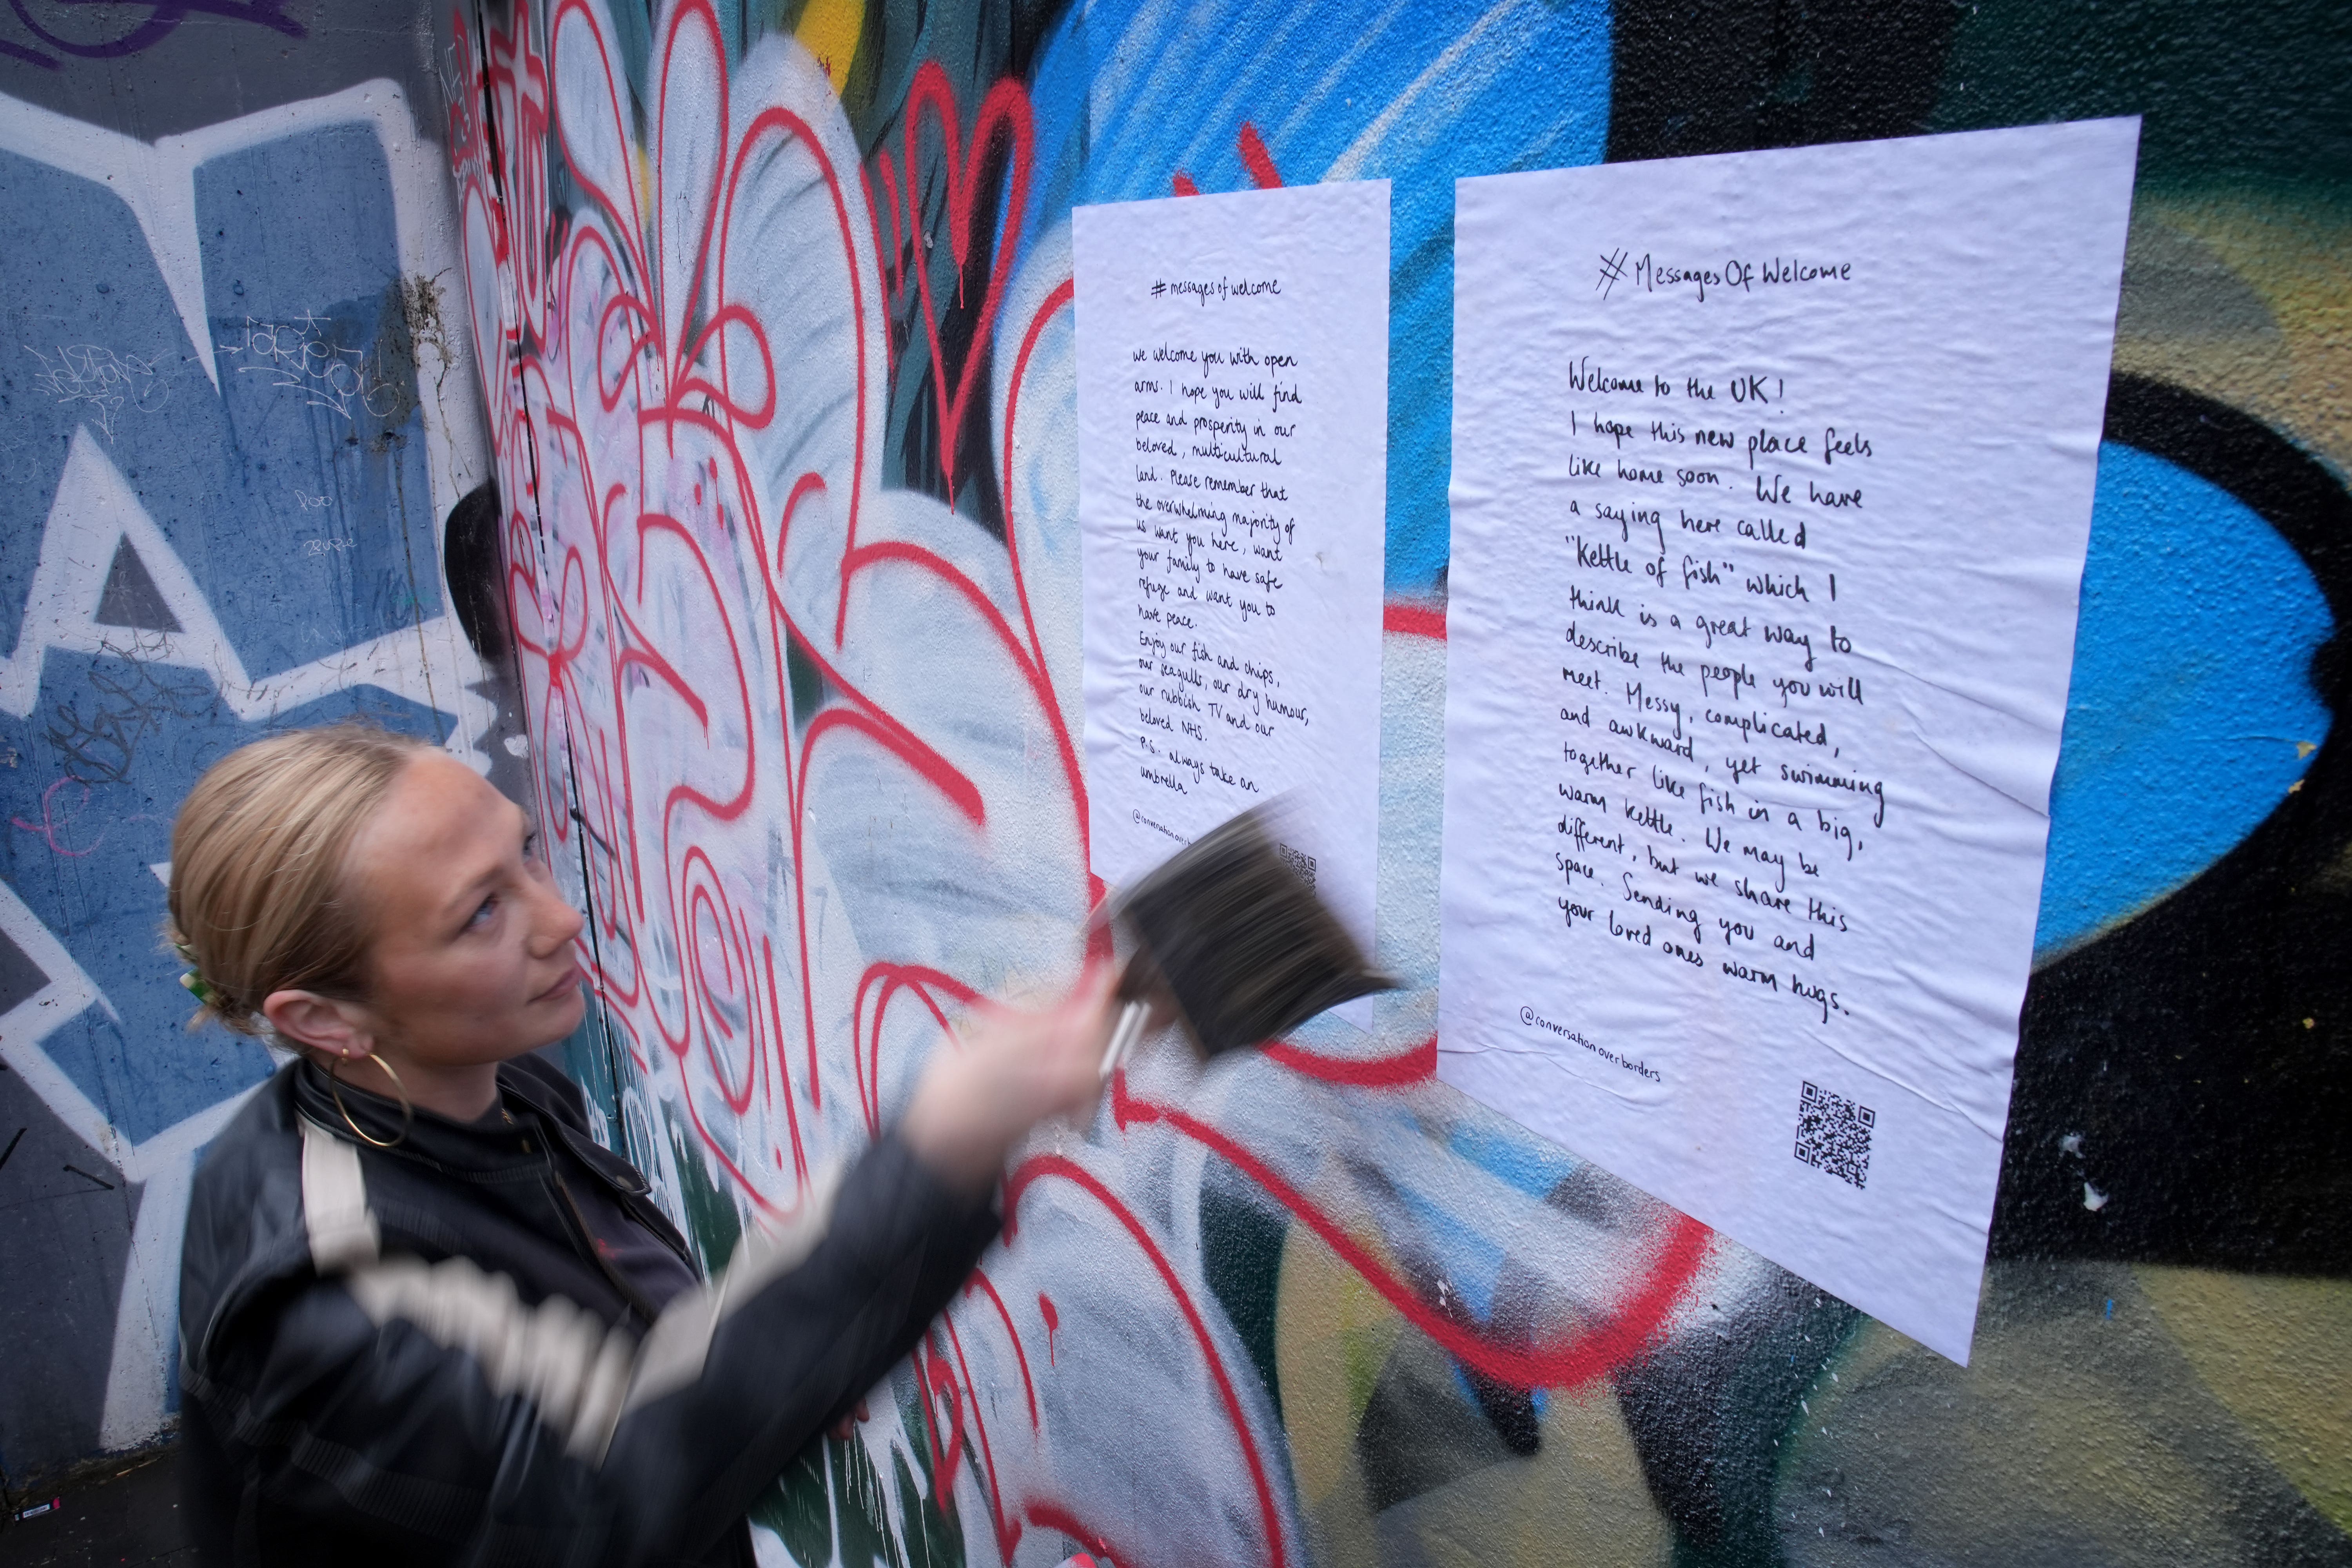 #messagesofwelcome
we welcome you with open
arms. I hope you will find
peace and prosperity in our
beloved, multicultural
land. Please remember that
the overwhelming majority of
us want you here, want
your family to have safe
refuge and want you to
have peace.
Enjoy our fish and chips,
our seagulls, our dry humour,
our rubbish TV and our
beloved NHS.
P.S. always take an
umbrella
#MessagesOfWelcome
Welcome to the UK!
I hope this new place feels
like home soon. We have
a saying here called
"Kettle of fish" which I
think is a great way to
describe the people you will
meet. Messy, complicated,
and awkward, yet swimming
together like fish in a big,
warm kettle. We may be
different, but we share this
space. Sending you and
your loved ones warm hugs.
@conversationoverborders